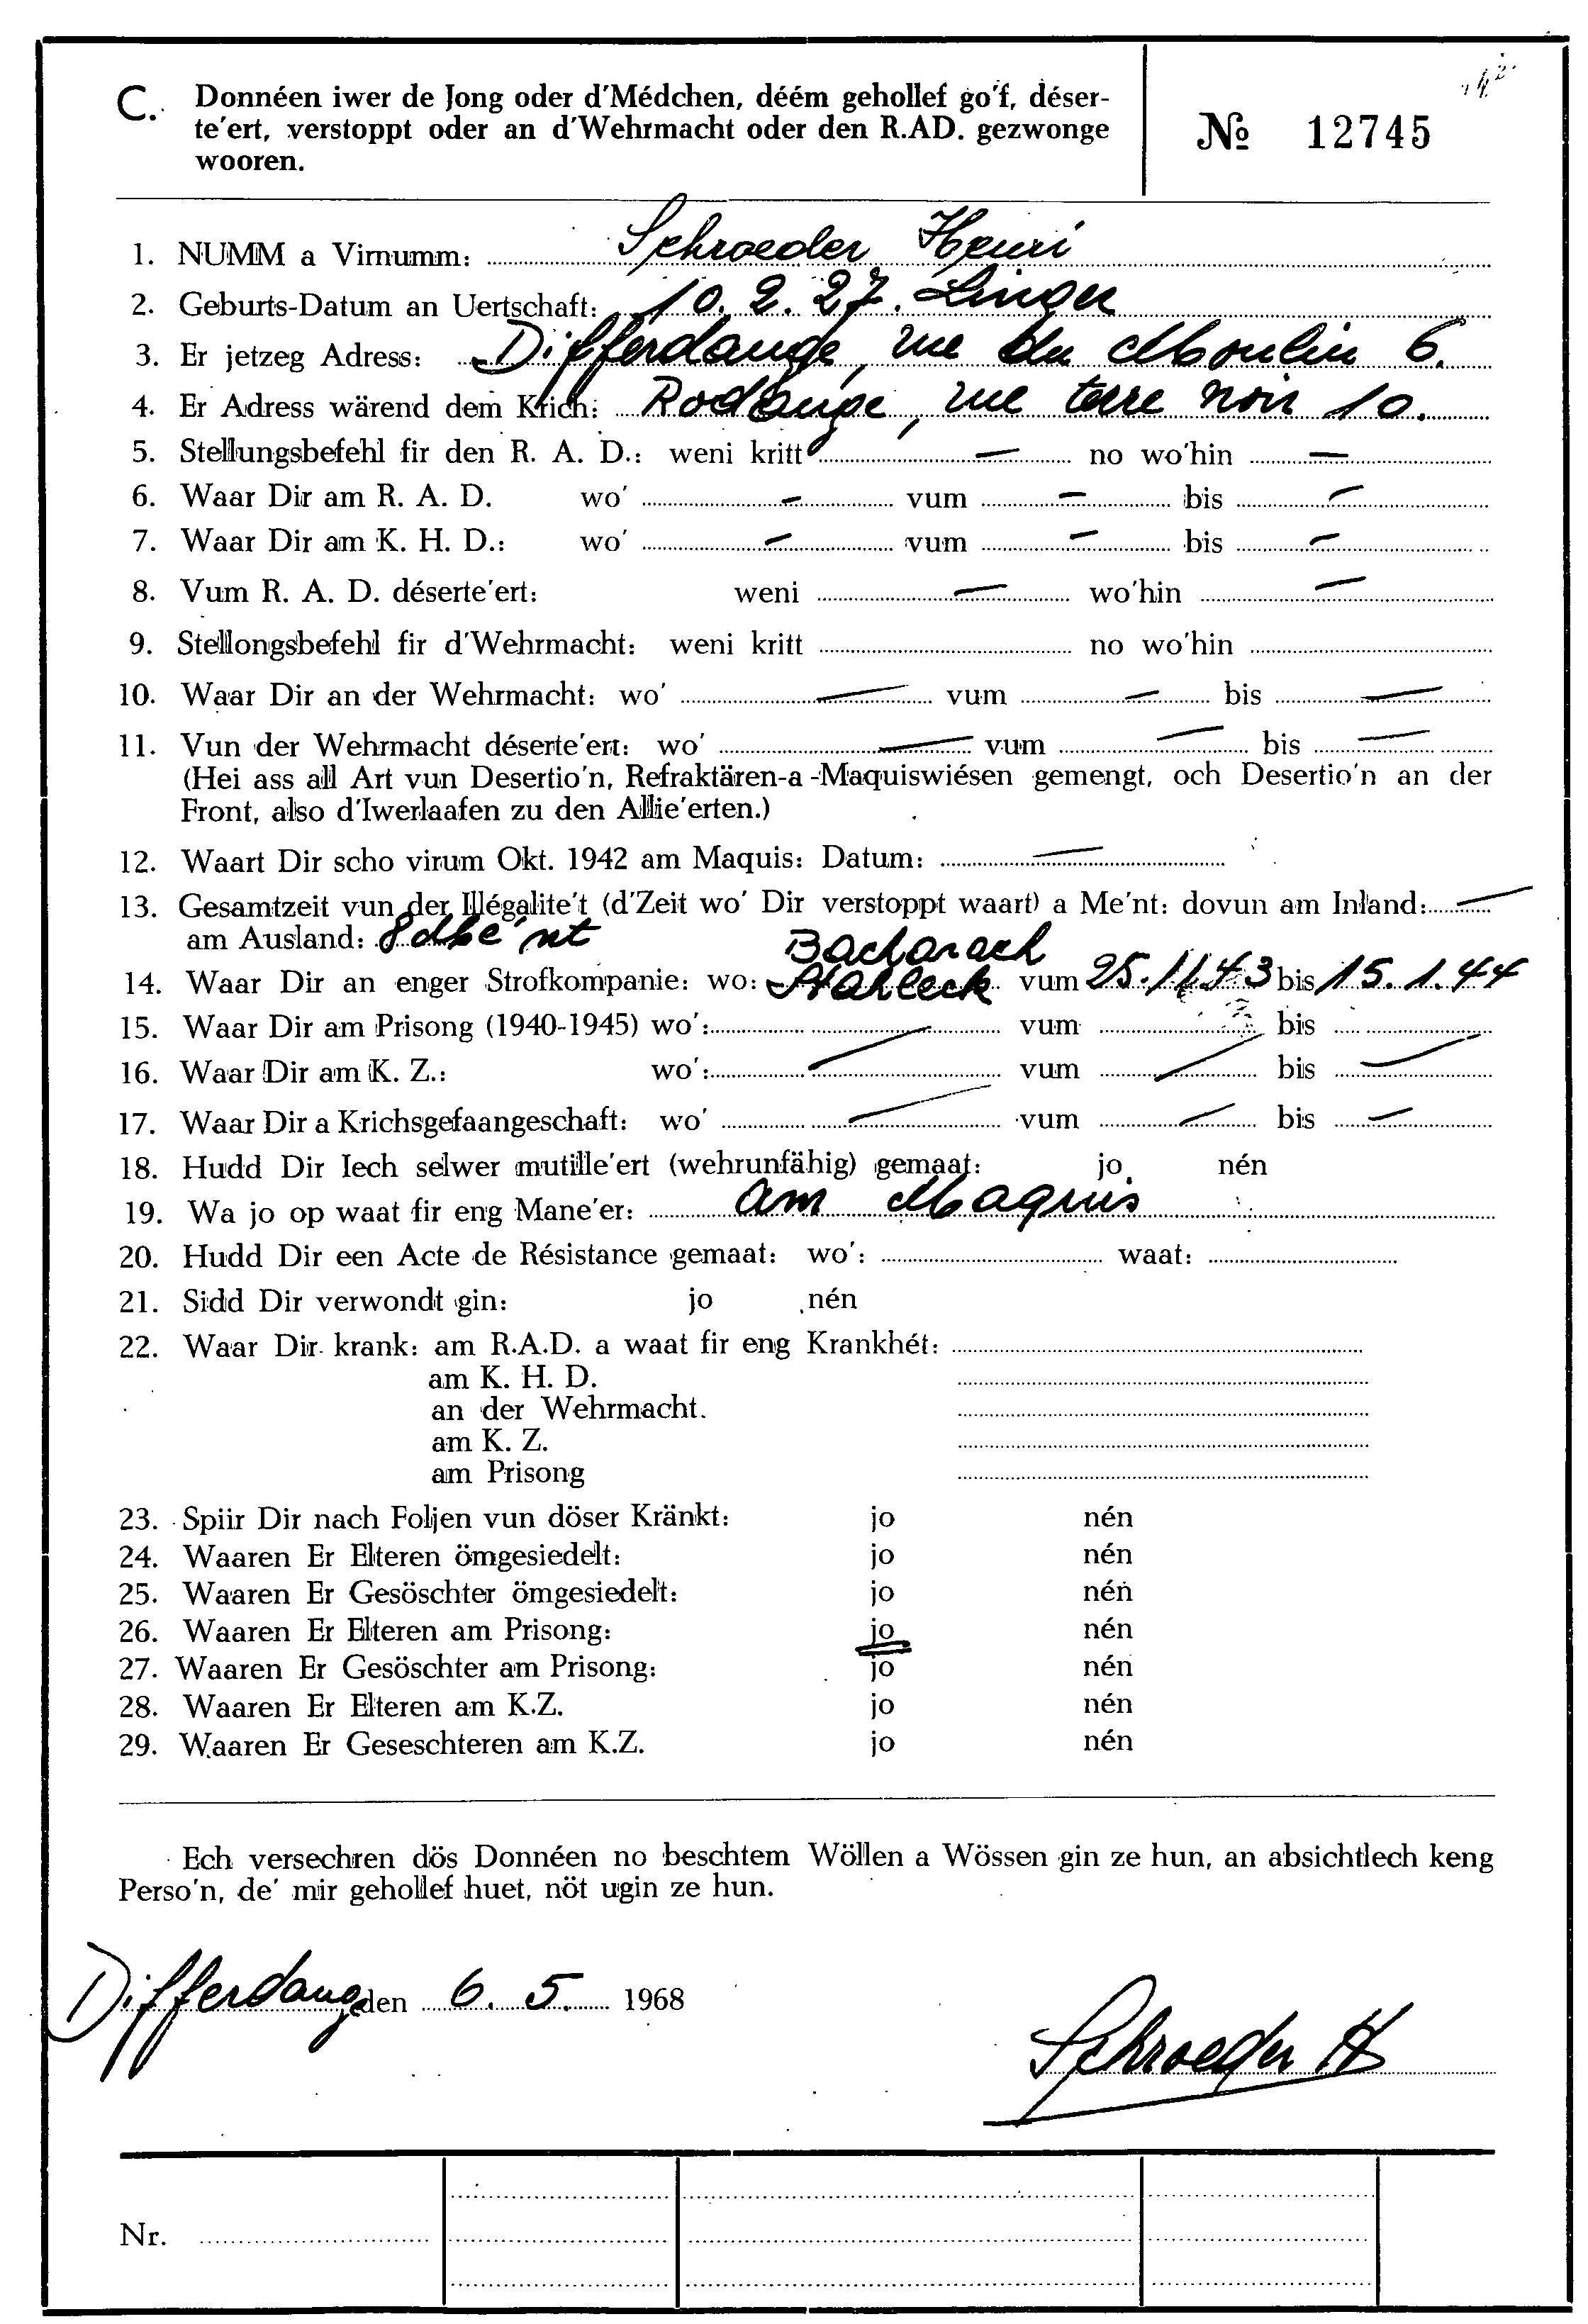 C. Donnéen iwer de Jong oder d'Médchen, déém gehollef go'f, déser-
te'ert, verstoppt oder an d'Wehrmacht oder den R.AD. gezwonge
wooren.
№ 12745
1. NUMM a Virnumm: Schroeder Henri
2. Geburts-Datum an Uertschaft: 10. 2. 27. Linger
3. Er jetzeg Adress: Differdange, rue du Moulin 6.
4. Er Adress wärend dem Krich: Rodange, rue terre noir 10.
5. Stellungsbefehl fir den R. A. D.: weni kritt — no wo'hin —
6. Waar Dir am R. A. D. wo' — vum — bis —
7. Waar Dir am K. H. D.: wo' — vum — bis —
8. Vum R. A. D. déserte'ert: weni — wo'hin —
9. Stellongsbefehl fir d'Wehrmacht: weni kritt no wo'hin
10. Waar Dir an der Wehrmacht: wo' — vum — bis —
11. Vun der Wehrmacht déserte'ert: wo' — vum — bis —
(Hei ass all Art vun Desertio'n, Refraktären-a -Maquiswiésen gemengt, och Desertio'n an der
Front, also d'Iwerlaafen zu den Allie'erten.)
12. Waart Dir scho virum Okt. 1942 am Maquis: Datum: —
13. Gesamtzeit vun der Illégalite't (d'Zeit wo' Dir verstoppt waart) a Me'nt: dovun am Inland: —
am Ausland: 8 Me'nt
Bacharach
14. Waar Dir an enger Strofkompanie: wo: Stahleck vum 25.11.43 bis 15.1.44
15. Waar Dir am Prisong (1940-1945) wo': vum bis
16. Waar Dir am K. Z.: wo': — vum — bis —
17. Waar Dir a Krichsgefaangeschaft: wo' — vum — bis —
18. Hudd Dir Iech selwer mutille'ert (wehrunfähig) gemaat: jo nén
19. Wa jo op waat fir eng Mane'er: am Maquis
20. Hudd Dir een Acte de Résistance gemaat: wo': waat:
21. Sidd Dir verwondt gin: jo nén
22. Waar Dir krank: am R.A.D. a waat fir eng Krankhét:
am K. H. D.
an der Wehrmacht.
am K. Z.
am Prisong
23. Spiir Dir nach Foljen vun döser Kränkt: jo nén
24. Waaren Er Elteren ömgesiedelt: jo nén
25. Waaren Er Gesöschter ömgesiedelt: jo nén
26. Waaren Er Elteren am Prisong: jo nén
27. Waaren Er Gesöschter am Prisong: jo nén
28. Waaren Er Elteren am K.Z. jo nén
29. Waaren Er Geseschteren am K.Z. jo nén
Ech versechren dös Donnéen no beschtem Wöllen a Wössen gin ze hun, an absichtlech keng
Perso'n, de' mir gehollef huet, nöt ugin ze hun.
Differdange den 6. 5. 1968
Schroeder H
Nr.